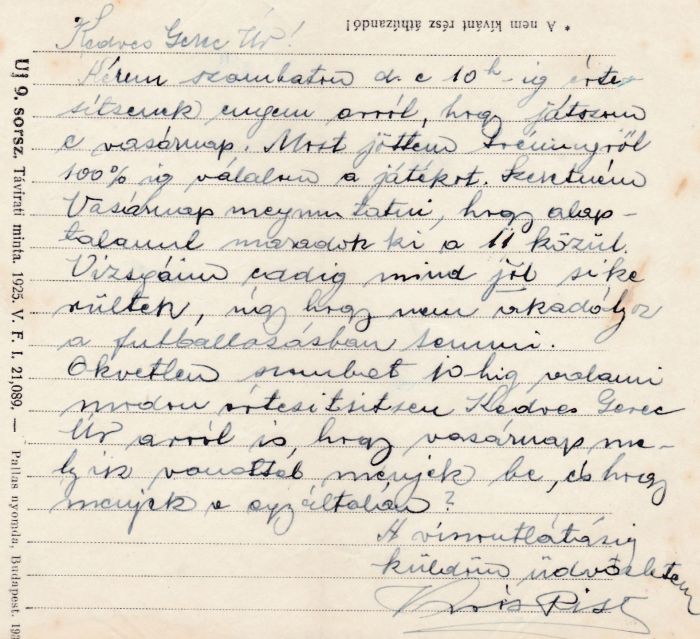 * A nem kívánt rész áthúzandó!
Kedves Gerec Úr!
Kérem szombaton d. e 10 h-ig érte-
sítsenek engem arról, hogy játszom
e vasárnap. Most jöttem tréningről
100% ig válalom a játékot. Szeretném
Vasárnap megmutatni, hogy alap-
talanul maradok ki a 11 közül.
Vizsgáim eddig mind jól sike
rültek, úgy hogy nem akadályoz
a futballozásban semmi.
Okvetlen szombat 10 hig valami
modon értesititsen Kedves Gerec
Úr arról is, hogy vasárnap me-
lyik vonattal menjek be, és hogy
menjek e egyáltalán?
A viszontlátásig
küldöm üdvözletem
Pist
Uj 9. sorsz. Távirati minta. 1925. V. F. I. 21,089. — Pallas nyomda, Budapest. 19